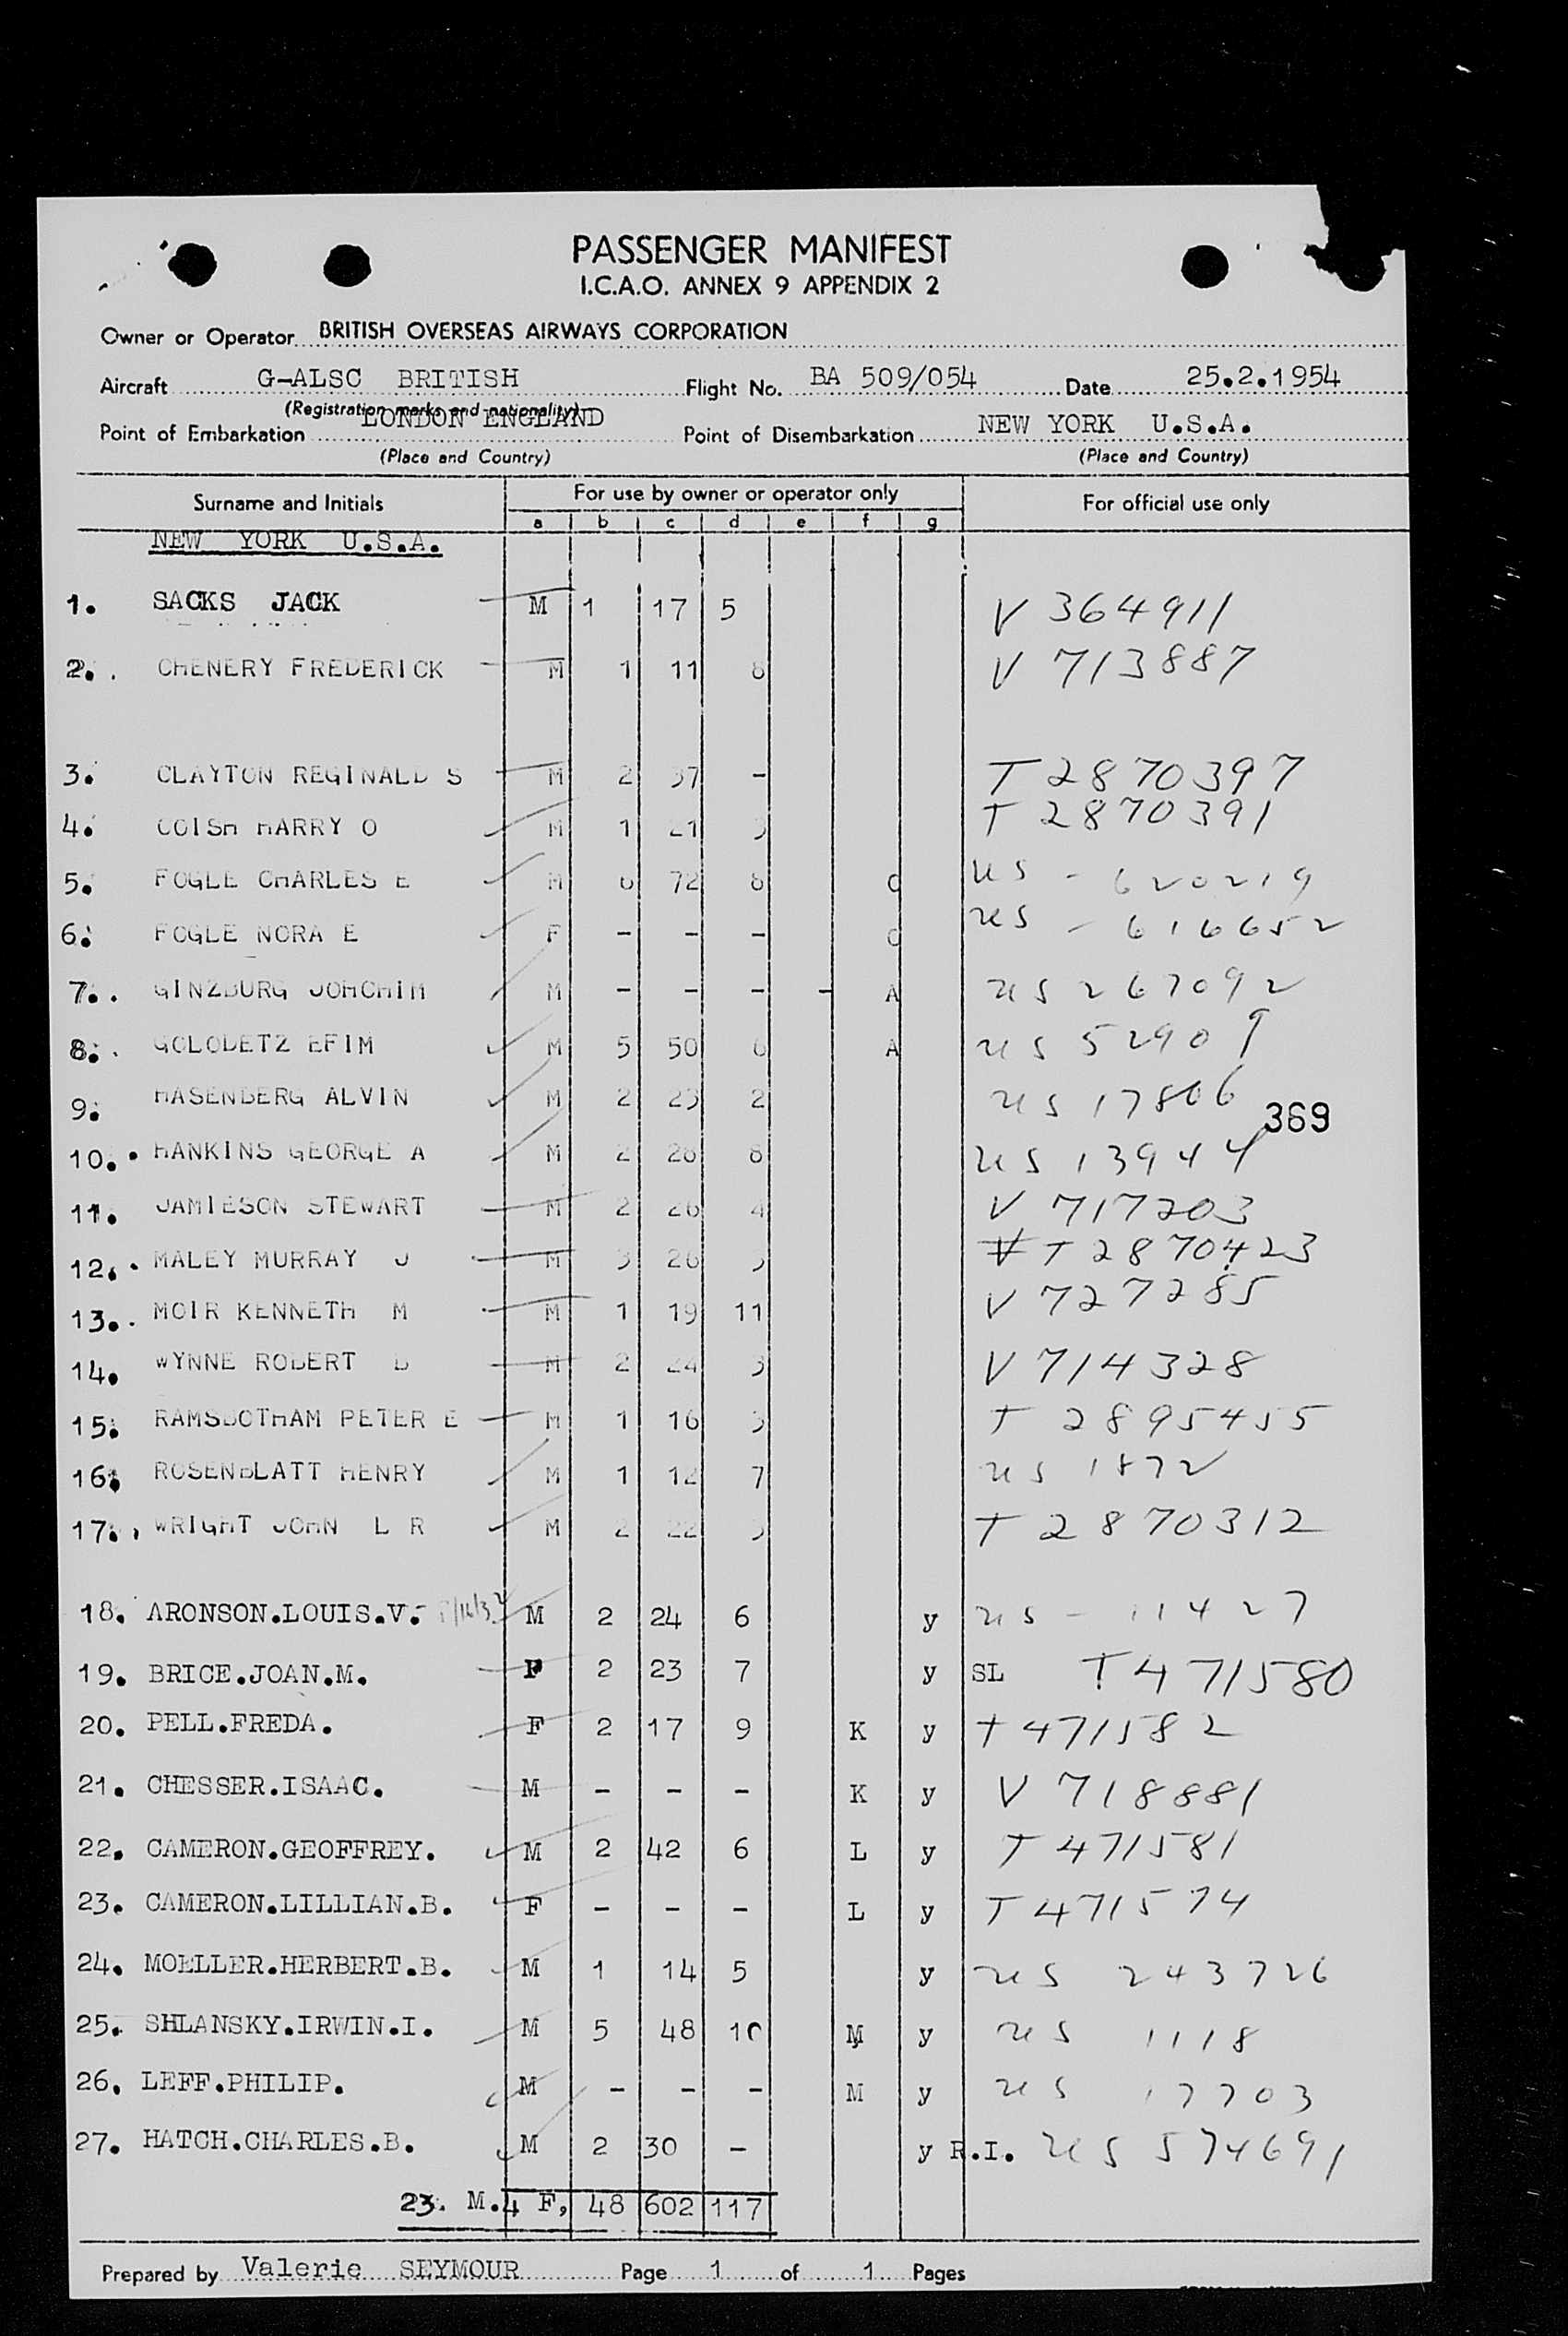 PASSENGER MANIFEST
I.C.A.O. ANNEX 9 APPENDIX 2
Owner or Operator BRITISH OVERSEAS AIRWAYS CORPORATION
Aircraft G-ALSC BRITISH Flight No. BA 509/054 Date 25.2.1954
(Registration marks and nationality)
Point of Embarkation LONDON ENGLAND Point of Disembarkation NEW YORK U.S.A.
(Place and Country) (Place and Country)
Surname and Initials For use by owner or operator only For official use only
a b c d e f g
NEW YORK U.S.A.
1. SACKS JACK M 1 17 5 V 364911
2. CHENERY FREDERICK M 1 11 8 V 713887
3. CLAYTON REGINALD S M 2 37 - T 2870397
4. COISH HARRY O M 1 21 T 2870391
5. FOGLE CHARLES E M 6 72 8 C US - 620219
6. FOGLE NORA E F - - - C US - 616652
7. GINZBURG JOHCHIM M - - - - A US 267092
8. GOLODETZ EFIM M 5 50 6 A US 52909
9. HASENBERG ALVIN M 2 23 2 US 17806
369
10. HANKINS GEORGE A M 2 28 8 US 13944
11. JAMIESON STEWART M 2 26 4 V 717203
12. MALEY MURRAY J M 3 26 T 2870423
13. MOIR KENNETH M M 1 19 11 V 727285
14. WYNNE ROBERT B M 2 24 3 V 714328
15. RAMSBOTHAM PETER E M 1 16 3 T 2895455
16. ROSENBLATT HENRY M 1 12 7 US 1872
17. WRIGHT JOHN L R M 2 22 T 2870312
18. ARONSON.LOUIS.V. M 2 24 6 y US - 11427
19. BRICE.JOAN.M. F 2 23 7 y SL T 471580
20. PELL.FREDA. F 2 17 9 K y T 471582
21. CHESSER.ISAAC. M - - - K y V 718881
22. CAMERON.GEOFFREY. M 2 42 6 L y T 471581
23. CAMERON.LILLIAN.B. F - - - L y T 471574
24. MOELLER.HERBERT.B. M 1 14 5 y US 243726
25. SHLANSKY.IRWIN.I. M 5 48 10 M y US 1118
26. LEFF.PHILIP. M - - - M y US 17703
27. HATCH.CHARLES.B. M 2 30 - y R.I. US 574691
23. M.4 F, 48 602 117
Prepared by Valerie SEYMOUR Page 1 of 1 Pages